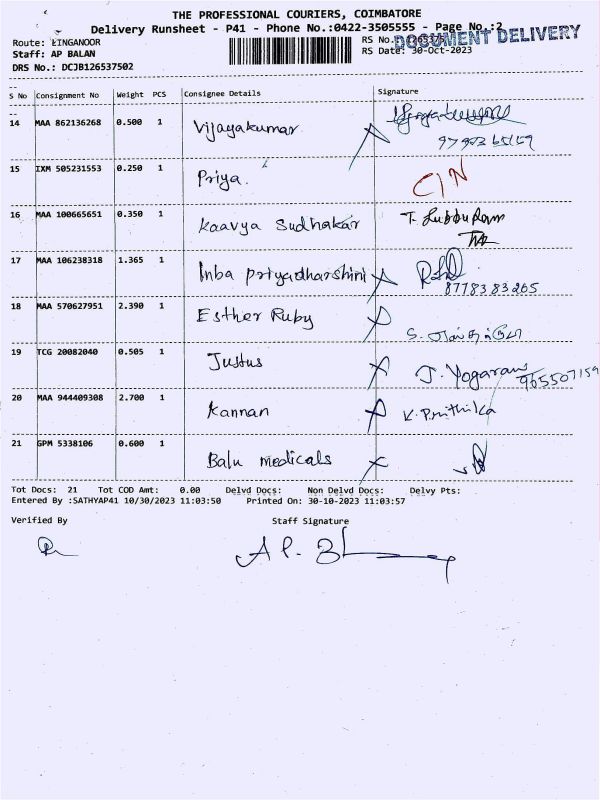 THE PROFESSIONAL COURIERS, COIMBATORE
Delivery Runsheet - P41 - Phone No.:0422-3505555 - Page No.:2
DOCUMENT DELIVERY
Route: LINGANOOR
RS No.
Staff: AP BALAN
RS Date: 30-Oct-2023
DRS No.: DCJB126537502
S No Consignment No Weight PCS Consignee Details Signature
14 MAA 862136268 0.500 1 Vijayakumar
15 IXM 505231553 0.250 1 Priya. C/N
16 MAA 100665651 0.350 1 Kaavya Sudhakar
17 MAA 106238318 1.365 1 Inba priyadharshini
8778383265
18 MAA 570627951 2.390 1 Esther Ruby
19 TCG 20082040 0.505 1 Justus J. Yogaram
20 MAA 944409308 2.700 1 Kannan K. Prithika
21 GPM 5338106 0.600 1 Balu medicals
Tot Docs: 21 Tot COD Amt: 0.00 Delvd Docs: Non Delvd Docs: Delvy Pts:
Entered By :SATHYAP41 10/30/2023 11:03:50 Printed On: 30-10-2023 11:03:57
Verified By Staff Signature